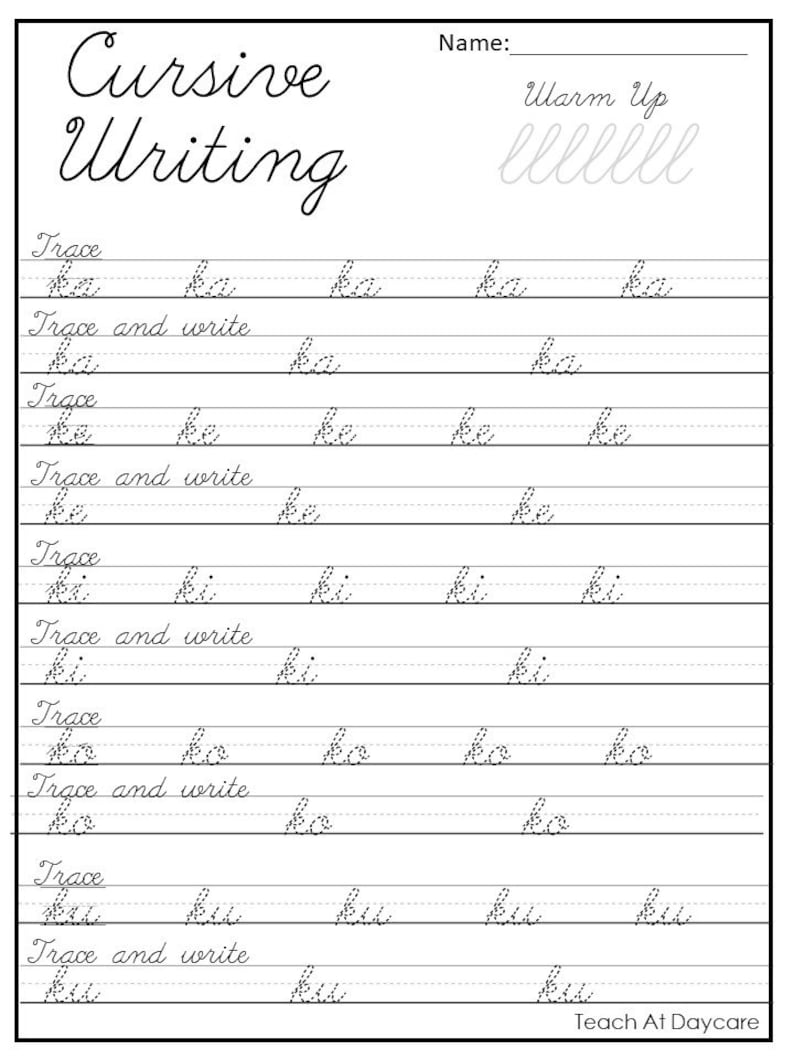 Cursive Name:
Writing
Warm Up
lllllll
Trace
ka ka ka ka ka
Trace and write
ka ka ka
Trace
ke ke ke ke ke
Trace and write
ke ke ke
Trace
ki ki ki ki ki
Trace and write
ki ki ki
Trace
ko ko ko ko ko
Trace and write
ko ko ko
Trace
ku ku ku ku ku
Trace and write
ku ku ku
Teach At Daycare